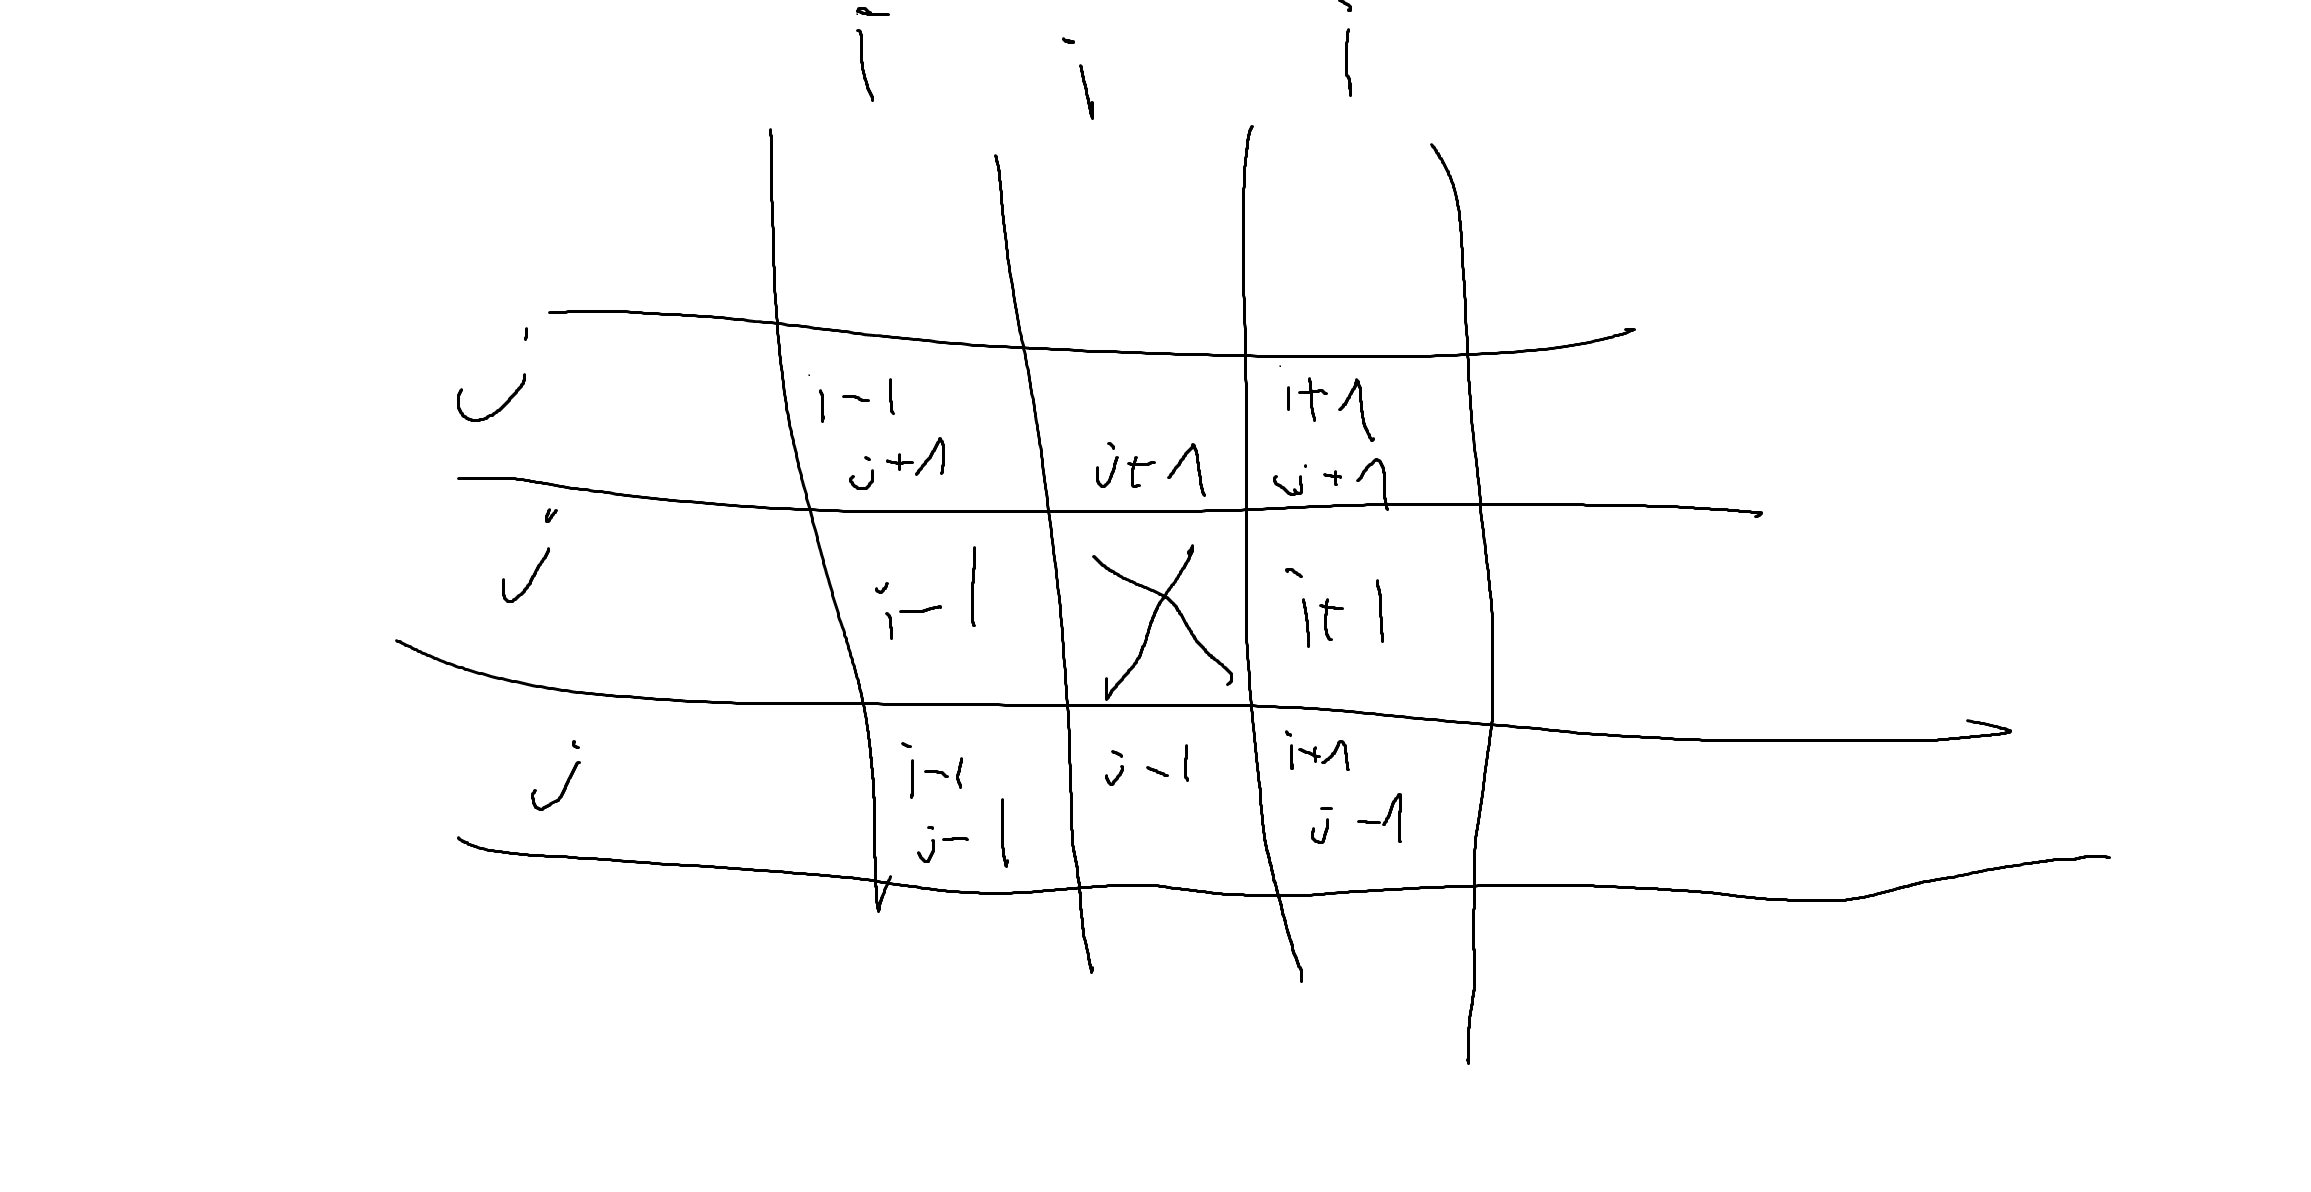 i i i
j
i-1 i+1
j+1 j+1 j+1
j
i-1 X i+1
j
i-1 j-1 i+1
j-1 j-1